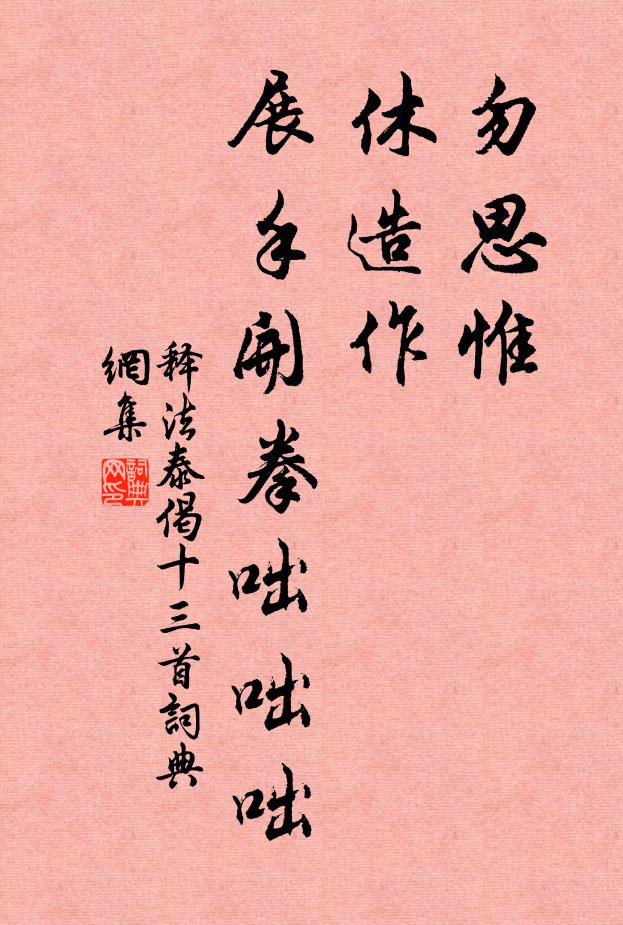 勿思惟
休造作
展手開拳咄咄咄
释法泰偈十三首詞典
網集
詞典
网印